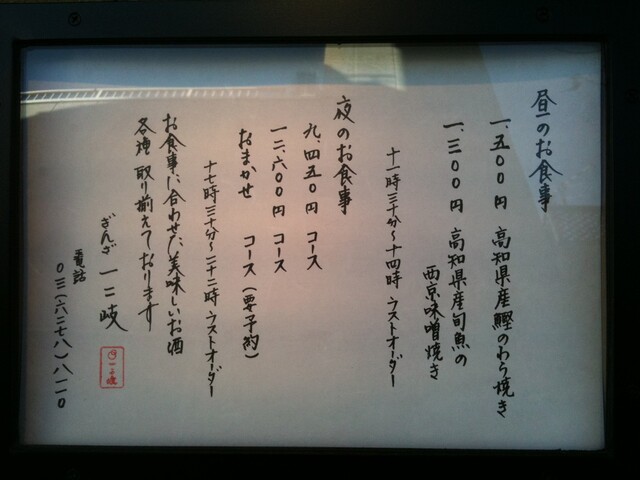 昼のお食事
一、五〇〇円 高知県産鰹のわら焼き
一、三〇〇円 高知県産旬魚の
西京味噌焼き
十一時三十分～十四時 ラストオーダー
夜のお食事
九、四五〇円 コース
一二、六〇〇円 コース
おまかせ コース（要予約）
十七時三十分～二十二時 ラストオーダー
お食事に合わせた美味しいお酒
各種取り揃えております
ぎんざ 一二岐
電話
〇三（六二七八）八一一〇